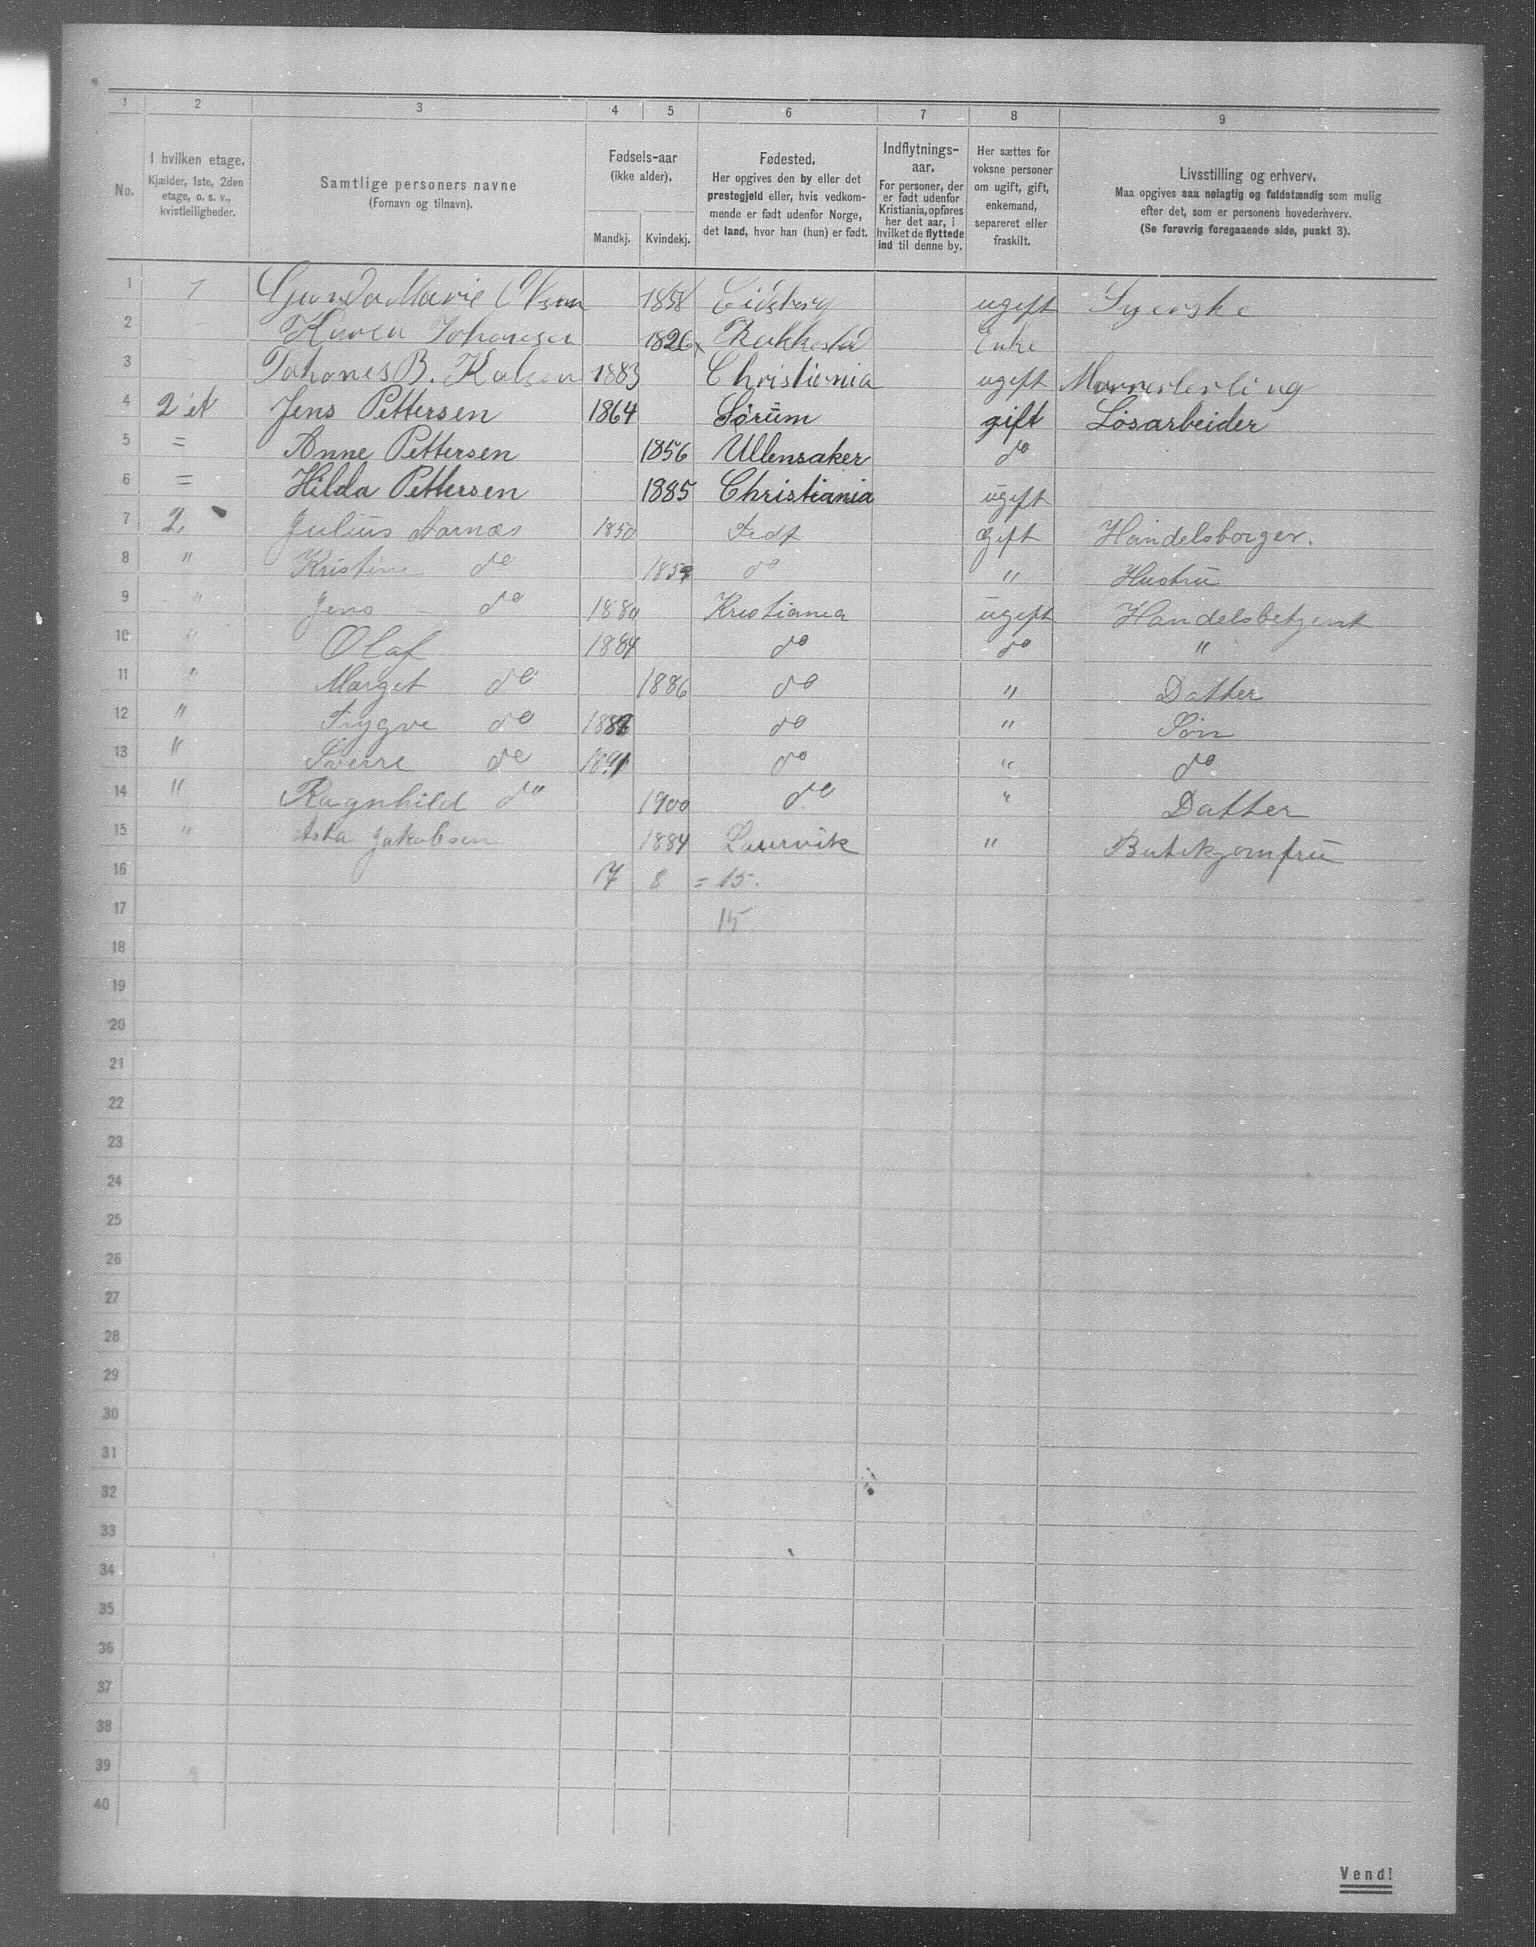 1 2 3 4 5 6 7 8 9
No. I hvilken etage. Kjælder, 1ste, 2den etage, o. s. v., kvistleiligheder. Samtlige personers navne (Fornavn og tilnavn). Fødsels-aar (ikke alder). Mandkj. Kvindekj. Fødested. Her opgives den by eller det prestegjeld eller, hvis vedkommende er født udenfor Norge, det land, hvor han (hun) er født. Indflytnings-aar. For personer, der er født udenfor Kristiania, opføres her det aar, i hvilket de flyttede ind til denne by. Her sættes for voksne personer om ugift, gift, enkemand, separeret eller fraskilt. Livsstilling og erhverv. Maa opgives saa nøiagtig og fuldstændig som mulig efter det, som er personens hovederhverv. (Se forøvrig foregaaende side, punkt 3).
1 1 Gunda Marie Olsen 1858 Eidsberg ugift Syerske
2 Karen Johansen 1826 Rakkestad Enke
3 Johanes B. Kalsen 1883 Christiania ugift
4 2 et Jens Pettersen 1864 Sørum gift Løsarbeider
5 = Anne Pettersen 1856 Ullensaker do
6 = Hilda Pettersen 1885 Christiania ugift
7 2. Julius Aarnæs 1850 gift Handelsborger.
8 " Kristine do do " Hustru
9 " Jens do 1880 Kristiania ugift Handelsbetjent
10 " Olaf 1884 do do "
11 " Marget do 1886 do " Datter
12 " Trygve do do " Søn
13 " Sverre do 1891 do " do
14 " Ragnhild do 1900 do " Datter
15 " Asta Jakobsen 1884 Laurvik " Butikjomfru
16 7 8 = 15.
17 15
18
19
20
21
22
23
24
25
26
27
28
29
30
31
32
33
34
35
36
37
38
39
40
Vend!